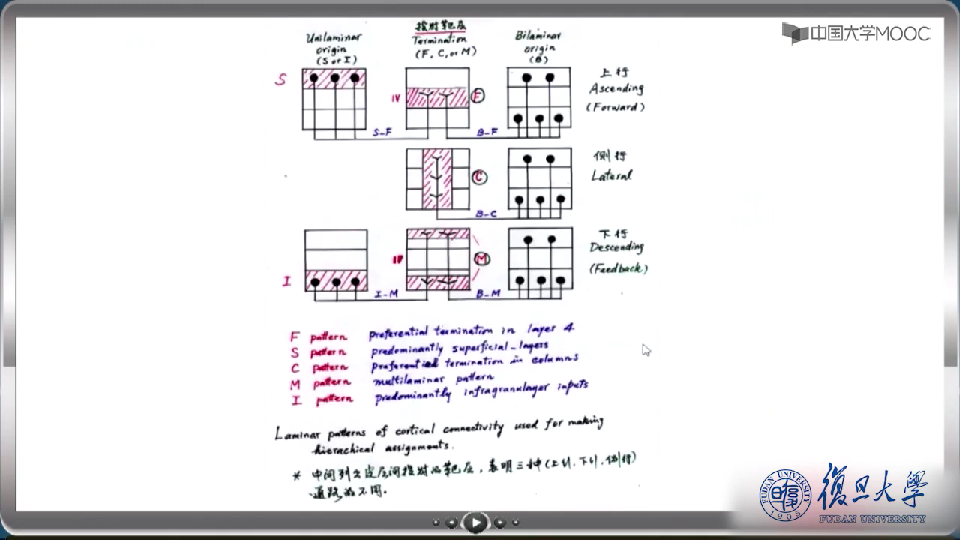 中国大学MOOC
Unilaminar
origin
(S or I)
投射靶层
Termination
(F, C, or M)
Bilaminar
origin
(B)
S
IV
F
上行
Ascending
(Forward)
S-F
B-F
C
侧行
Lateral
B-C
I
IV
M
下行
Descending
(Feedback)
I-M
B-M
F pattern preferential termination in layer 4
S pattern predominantly superficial-layers
C pattern preferential termination in columns
M pattern multilaminar pattern
I pattern predominantly infragranular inputs
Laminar patterns of cortical connectivity used for making
hierachical assignments.
* 中间列为皮层间投射的靶层，表明三种(上行.下行.侧行)
通路的不同.
復旦大學
FUDAN UNIVERSITY